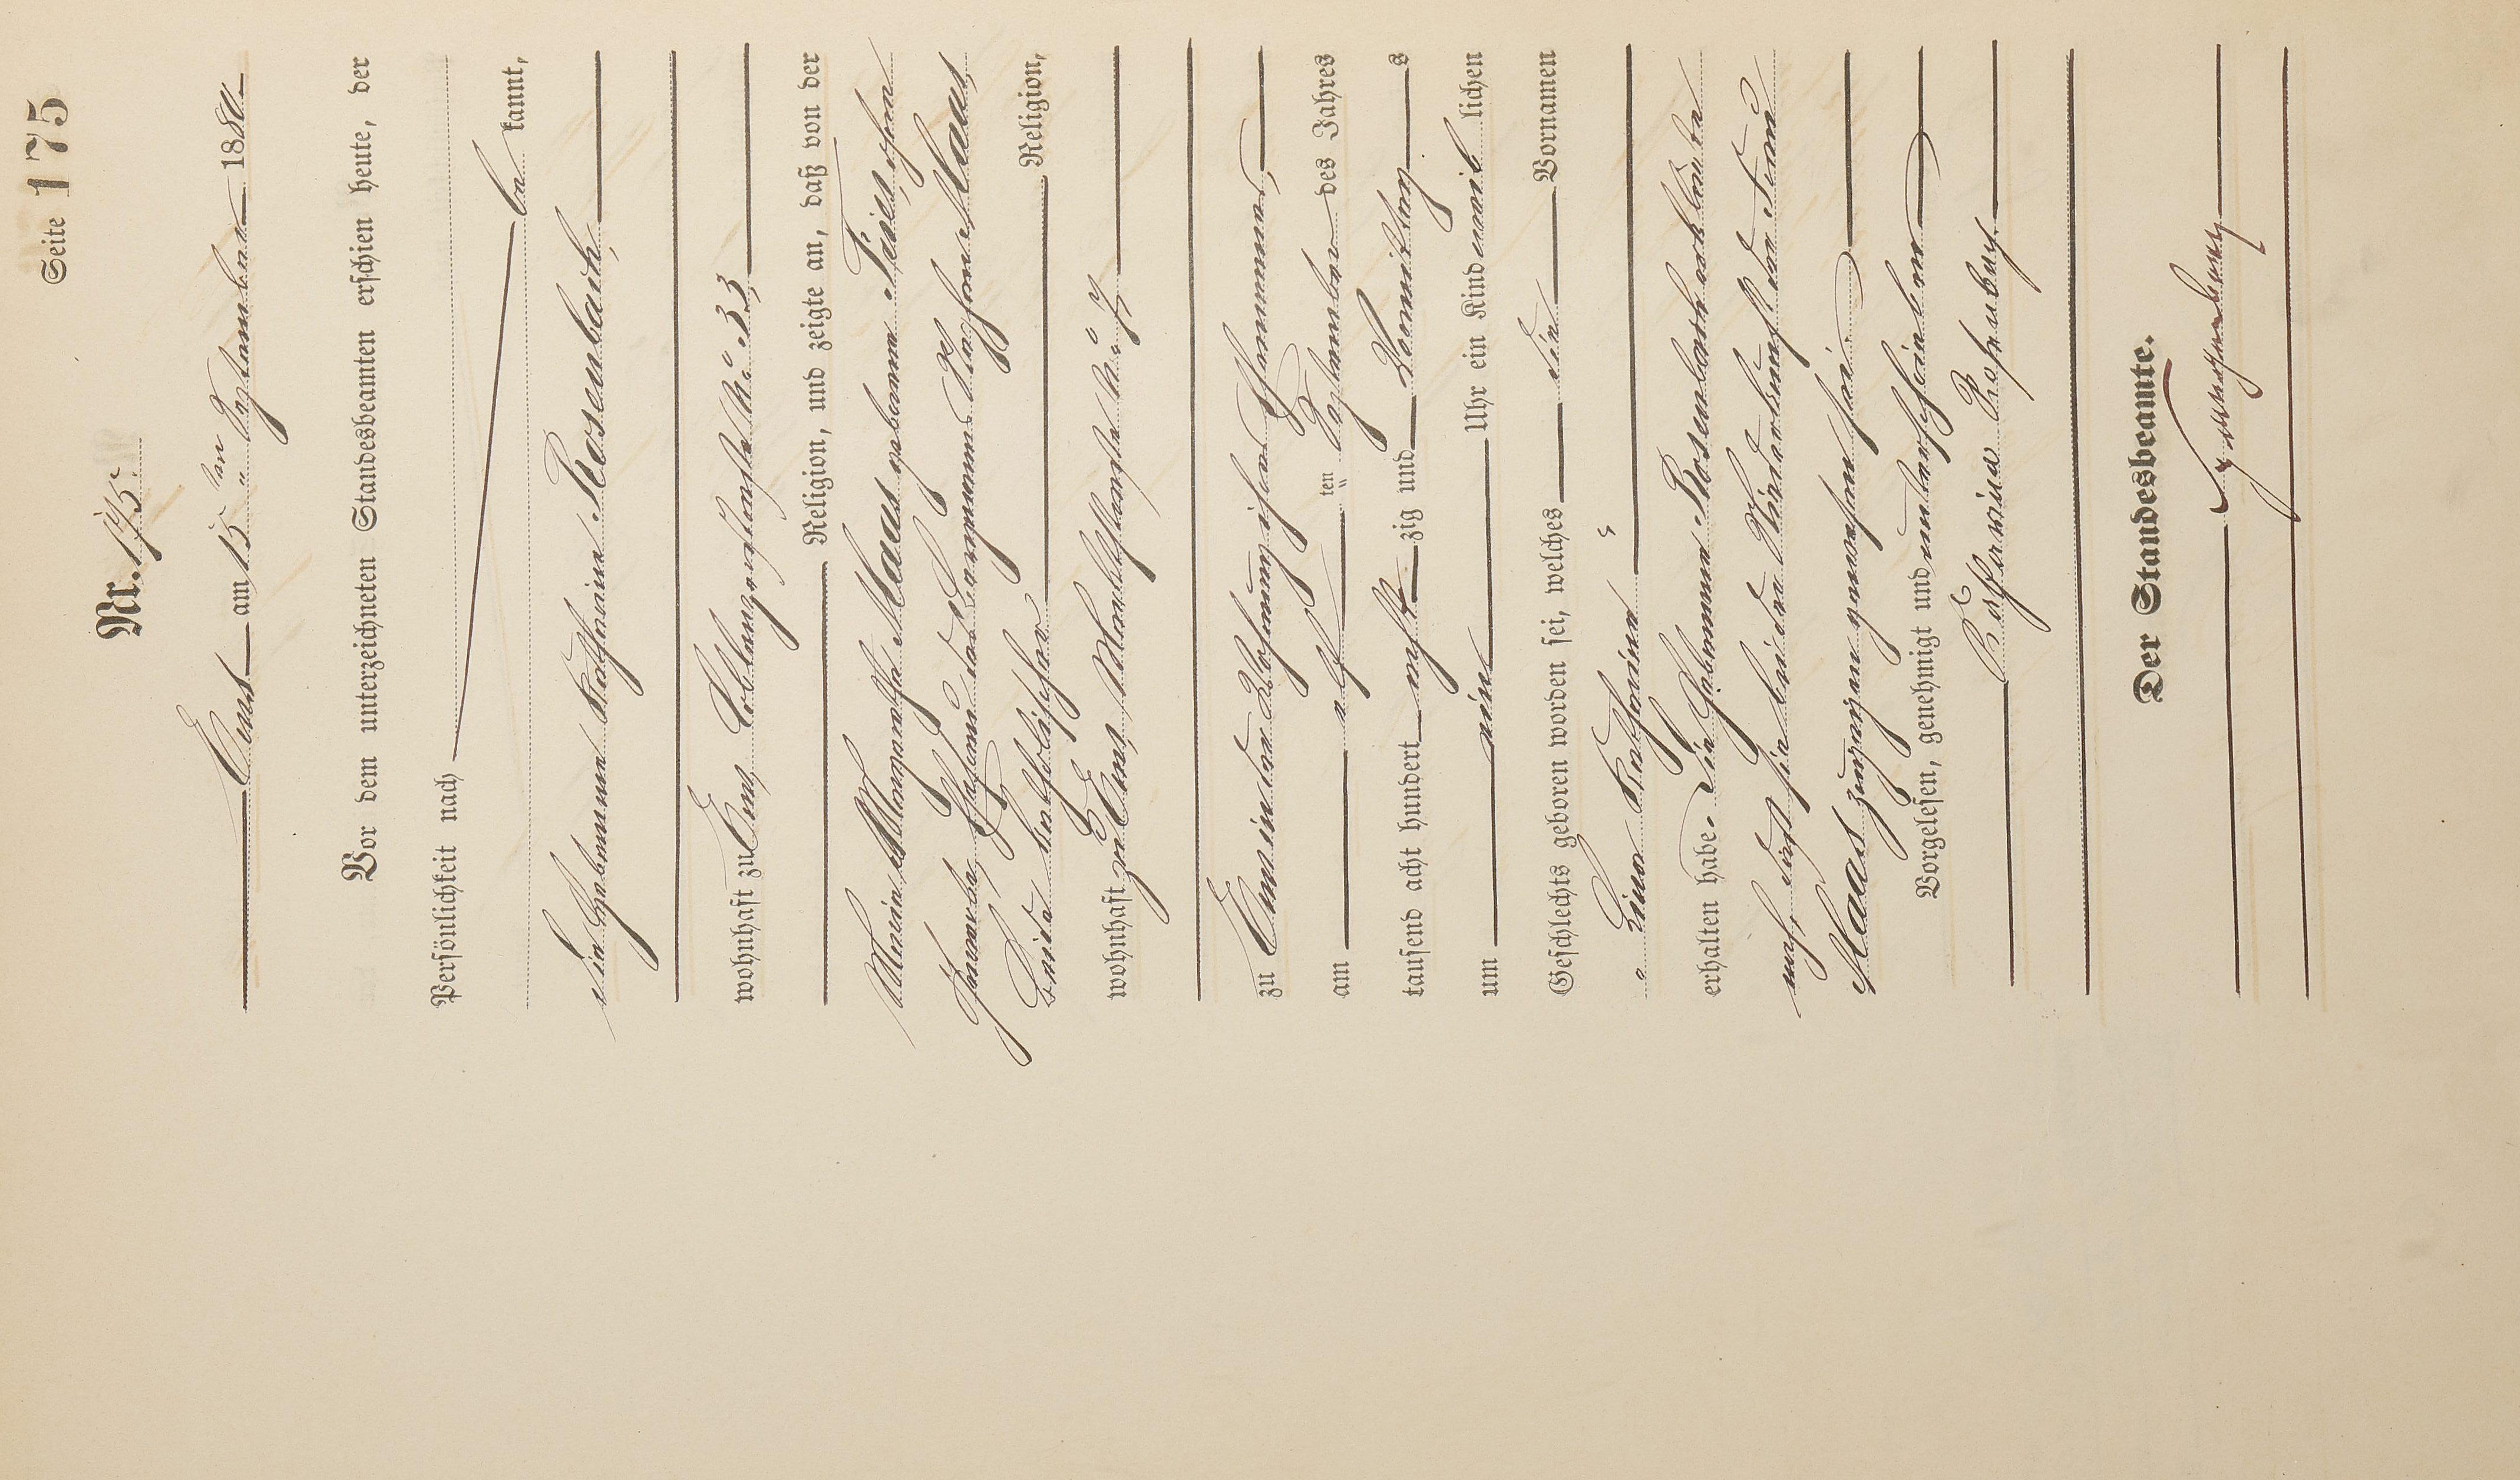 Seite 175
Nr. 175.
Ems am 15ten September 1880.
Vor dem unterzeichneten Standesbeamten erschien heute, der
Persönlichkeit nach
be kannt,
die Hebamme Katharina Rosenbach,
wohnhaft zu Ems, Coblenzerstraße No 33,
Religion, und zeigte an, daß von der
Maria Margaretha Maas geborene Theis, ohne
Gewerbe, Ehefrau des Bergmanns Maas,
Beide katholischer Religion,
wohnhaft zu Ems, Marktstraße No 7,
zu Ems in der Wohnung ihres Ehemannes,
am elf ten September des Jahres
tausend acht hundert acht zig und Vormittags
um ein Uhr ein Kind weib lichen
Geschlechts geboren worden sei, welches die Vornamen
Katharina
erhalten habe. Die Hebamme Rosenbach erklärte
noch, daß sie bei der Niederkunft der Frau
Maas zugegen gewesen sei.
Vorgelesen, genehmigt und unterschrieben
Katharina Rosenbach.
Der Standesbeamte.